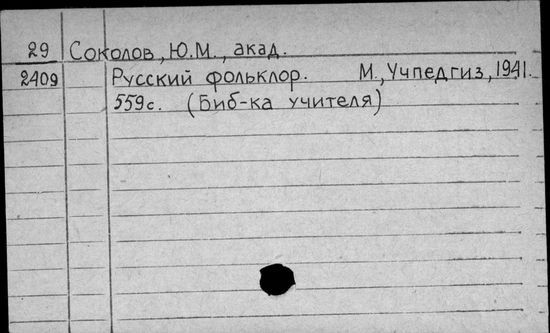 29 Соколов, Ю.М., акад.
2409 Русский фольклор. М., Учпедгиз, 1941.
559с. (Биб-ка учителя)